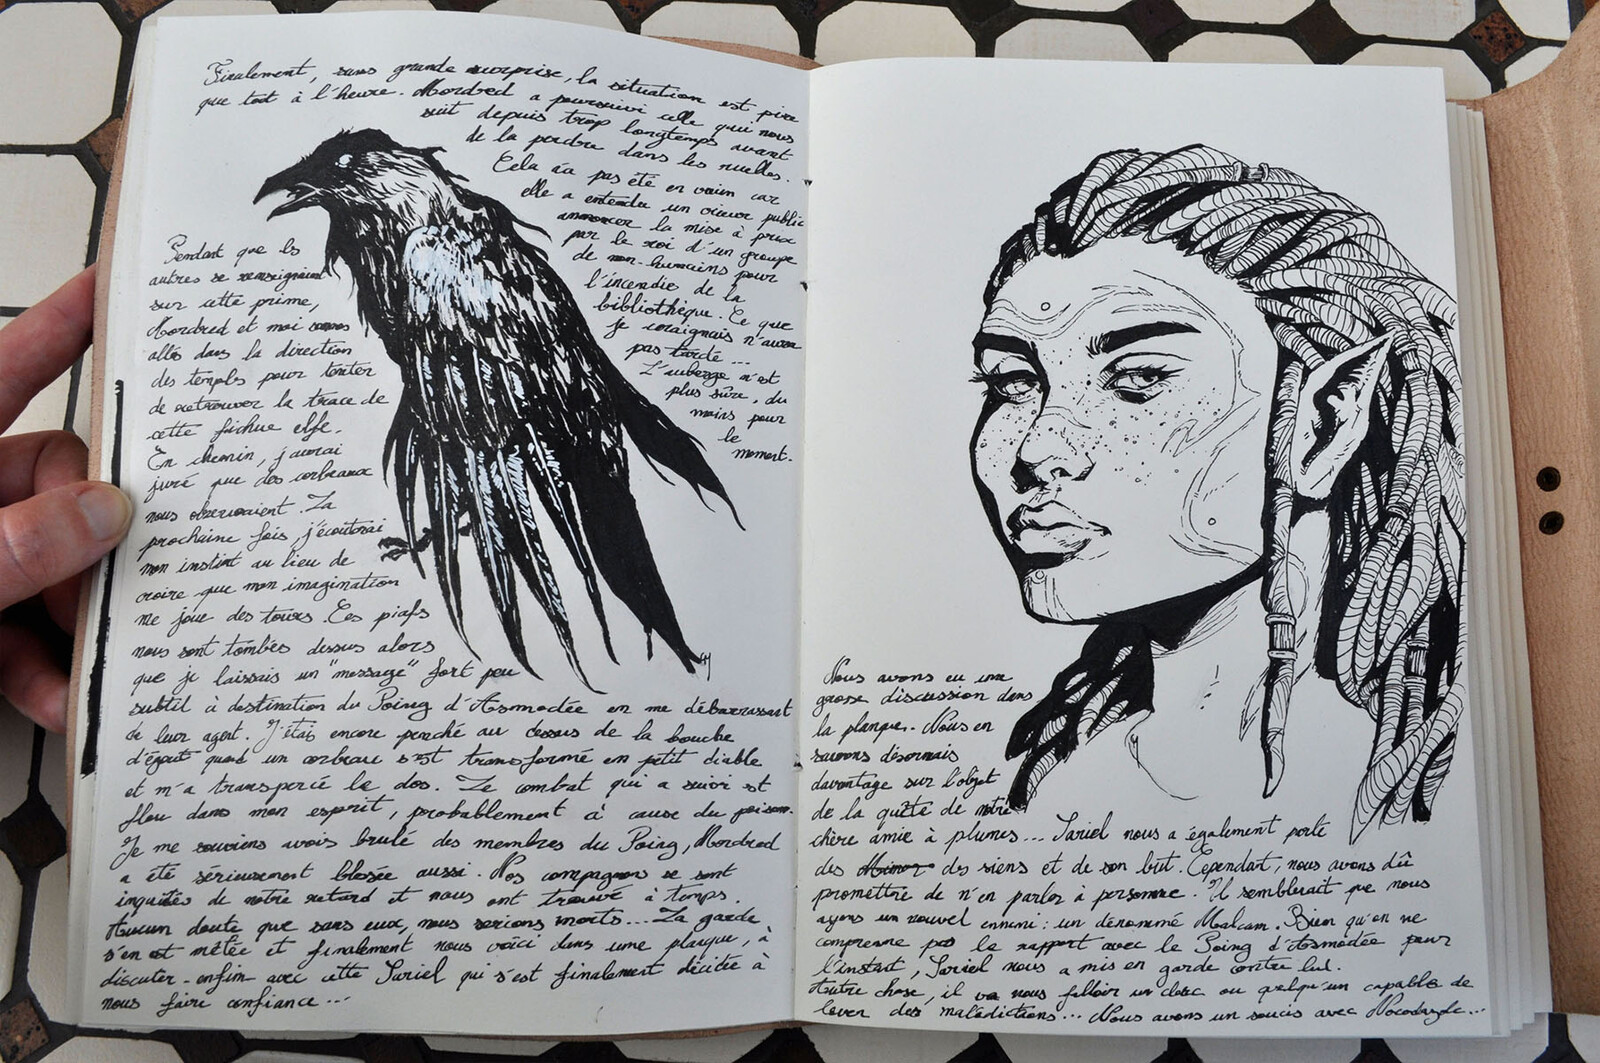 Finalement, sans grande surprise, la situation est pire
que tout à l'heure. Mordred a poursuivi celle qui nous
suit depuis trop longtemps avant
de la perdre dans les ruelles.
Cela n'a pas été en vain car
elle a entendu un crieur public
annoncer la mise à prix
par le roi d'un groupe
de non-humains pour
l'incendie de la
bibliothèque. Ce que
je craignais n'aura
pas tardé...
L'auberge n'est
plus sûre, du
moins pour
le
moment.
Pendant que les
autres se renseignaient
sur cette prime,
Mordred et moi sommes
allés dans la direction
des temples pour tenter
de retrouver la trace de
cette fichue elfe.
En chemin, j'aurai
juré que des corbeaux
nous observaient. La
prochaine fois j'écouterai
mon instint au lieu de
croire que mon imagination
me joue des tours. Ces piafs
nous sont tombés dessus alors
que je laissais un "message" fort peu
subtil à destination du Poing d'Asmodée en me débarrassant
de leur agent. J'étais encore penché au dessus de la bouche
d'égout quand un corbeau s'est transformé en petit diable
et m'a transpercé le dos. Le combat qui a suivi est
flou dans mon esprit, probablement à cause du poison.
Je me souviens avoir brulé des membres du Poing, Mordred
a été sérieusement blessée aussi. Nos compagnons se sont
inquiétés de notre retard et nous ont trouvé à temps.
Aucun doute que sans eux, nous serions morts... La garde
s'en est mêlée et finalement nous voici dans une planque, à
discuter enfin avec cette Sariel qui s'est finalement décidée à
nous faire confiance...
Nous avons eu une
grosse discussion dans
la planque. Nous en
savons désormais
davantage sur l'objet
de la quête de notre
chère amie à plumes... Sariel nous a également parlé
des des siens et de son but. Cependant, nous avons dû
promettre de n'en parler à personne. Il semblerait que nous
ayons un nouvel ennemi : un dénommé Malcam. Bien qu'on ne
comprenne pas le rapport avec le Poing d'Asmodée pour
l'instant, Sariel nous a mis en garde contre lui.
Autre chose, il va nous falloir un clerc ou quelqu'un capable de
lever des malédictions... Nous avons un soucis avec